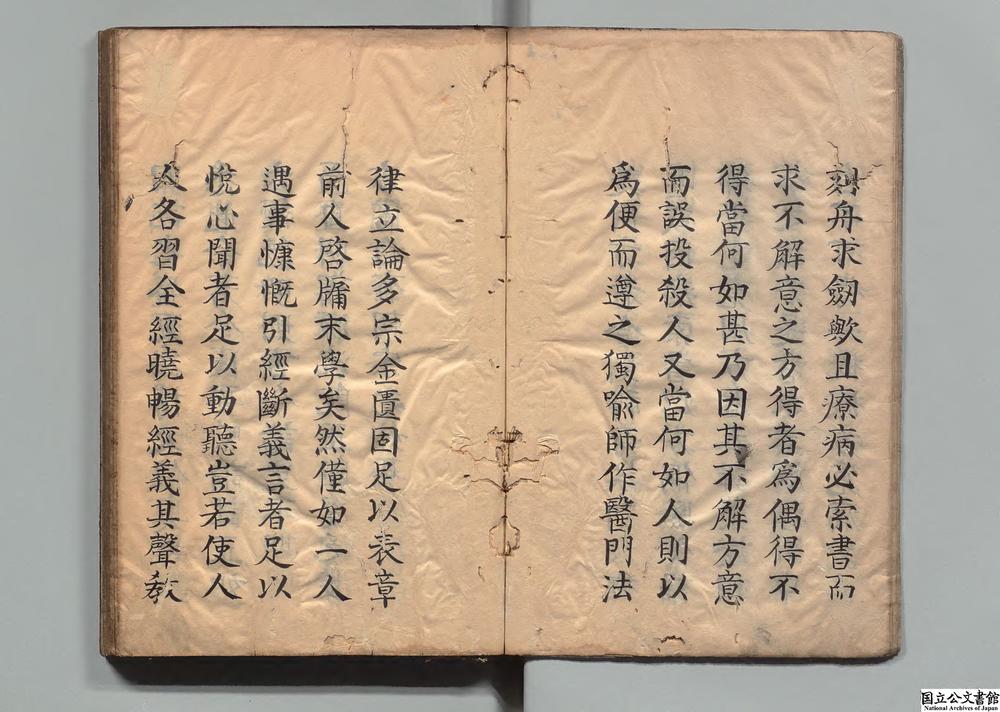 刻舟求劒歟且療病必索書而
求不解意之方得者為偶得不
得當何如甚乃因其不解方意
而誤投殺人又當何如人則以
為便而遵之獨喻師作醫門法
律立論多宗金匱固足以表章
前人啓牖末學矣然僅如一人
遇事慷慨引經斷義言者足以
悅心聞者足以動聽豈若使人
人各習全經曉暢經義其聲教
国立公文書館
National Archives of Japan